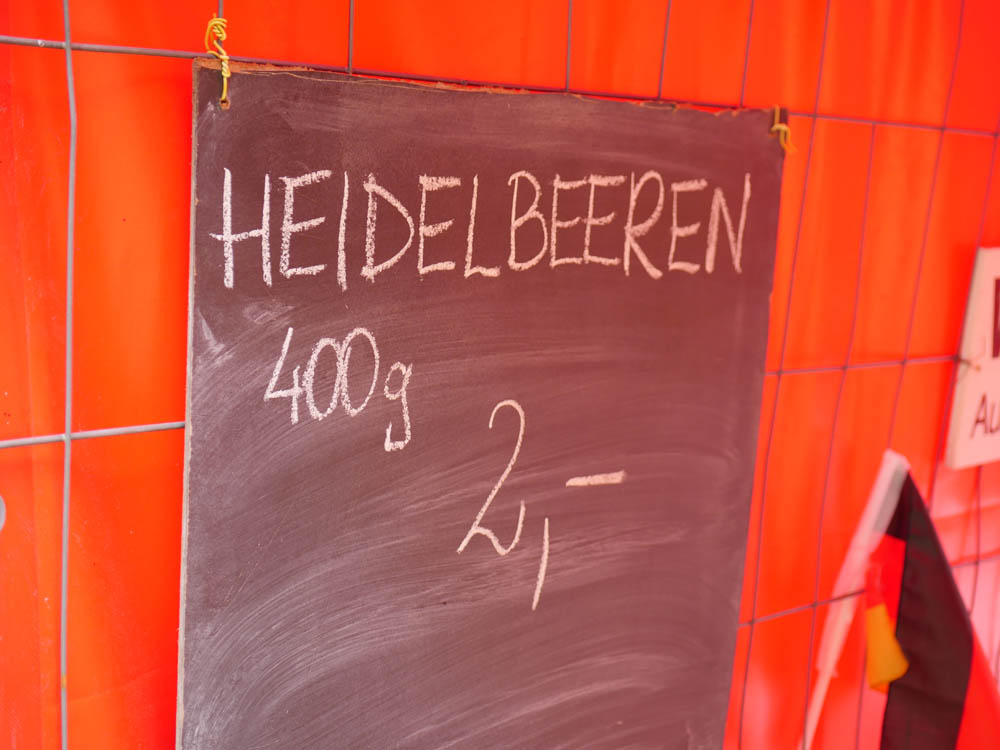 HEIDELBEEREN
400g
2,–